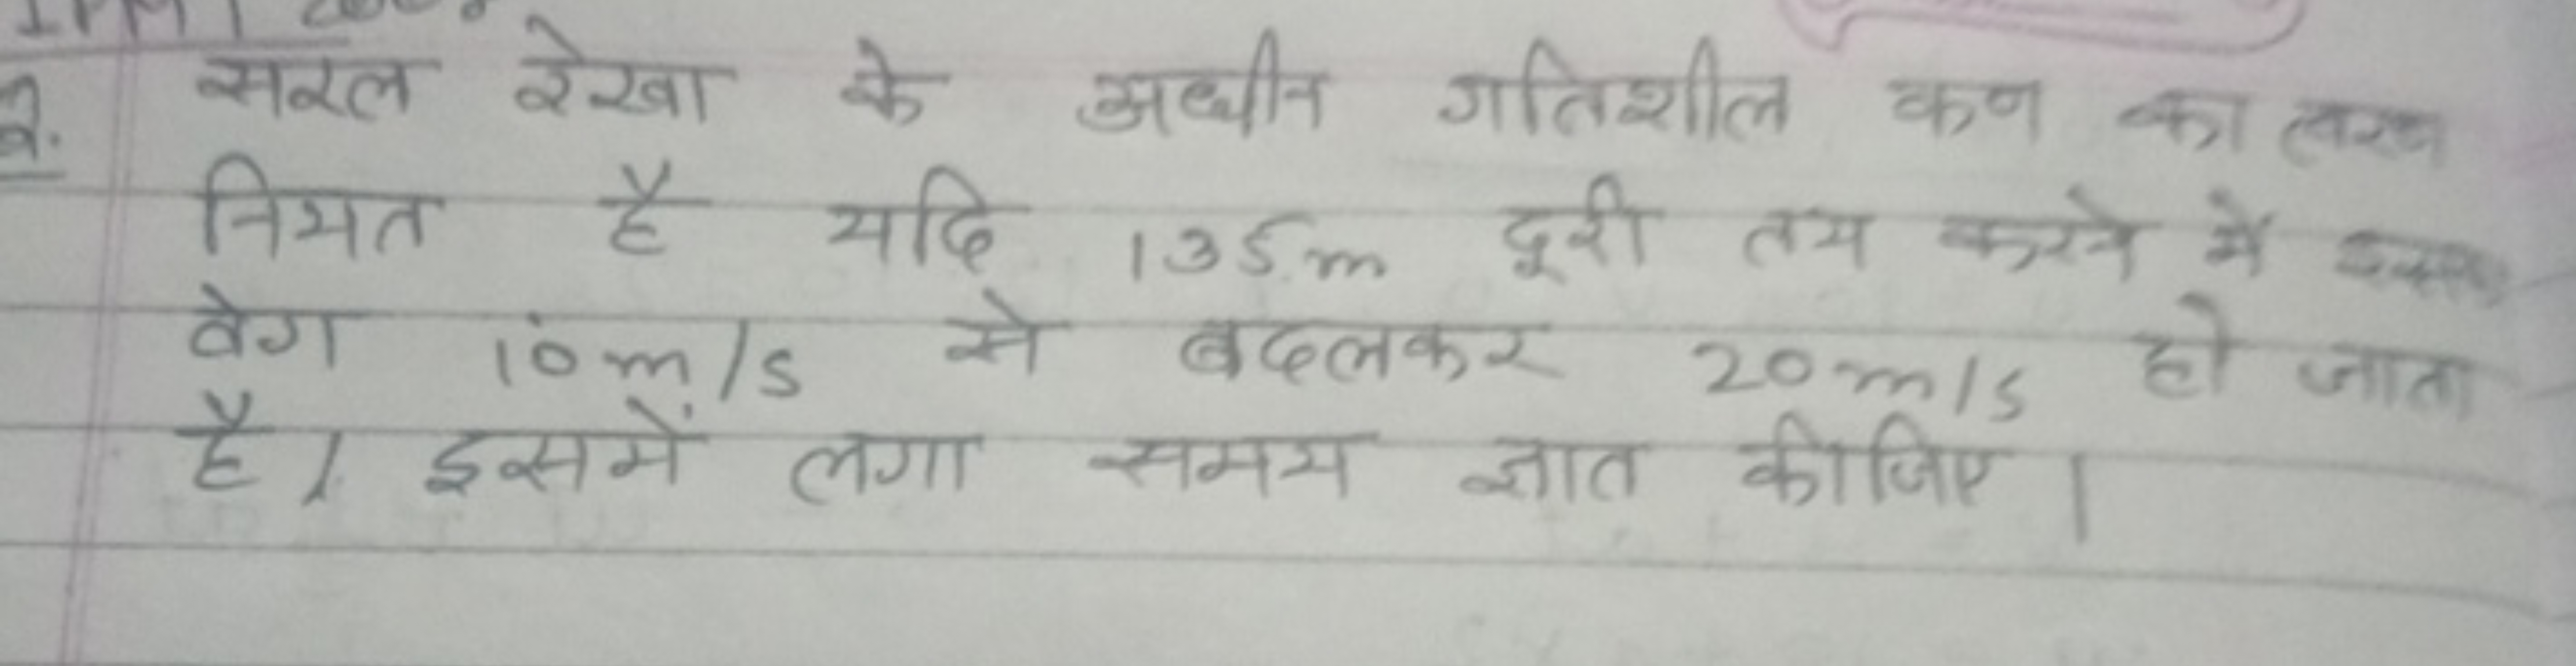 सरल रेखा के अधीन गतिशील कण का त्वरण
नियत है यदि 135m दूरी तय करने में इसका
वेग 10m/s से बदलकर 20m/s हो जाता
है। इसमें लगा समय ज्ञात कीजिए।